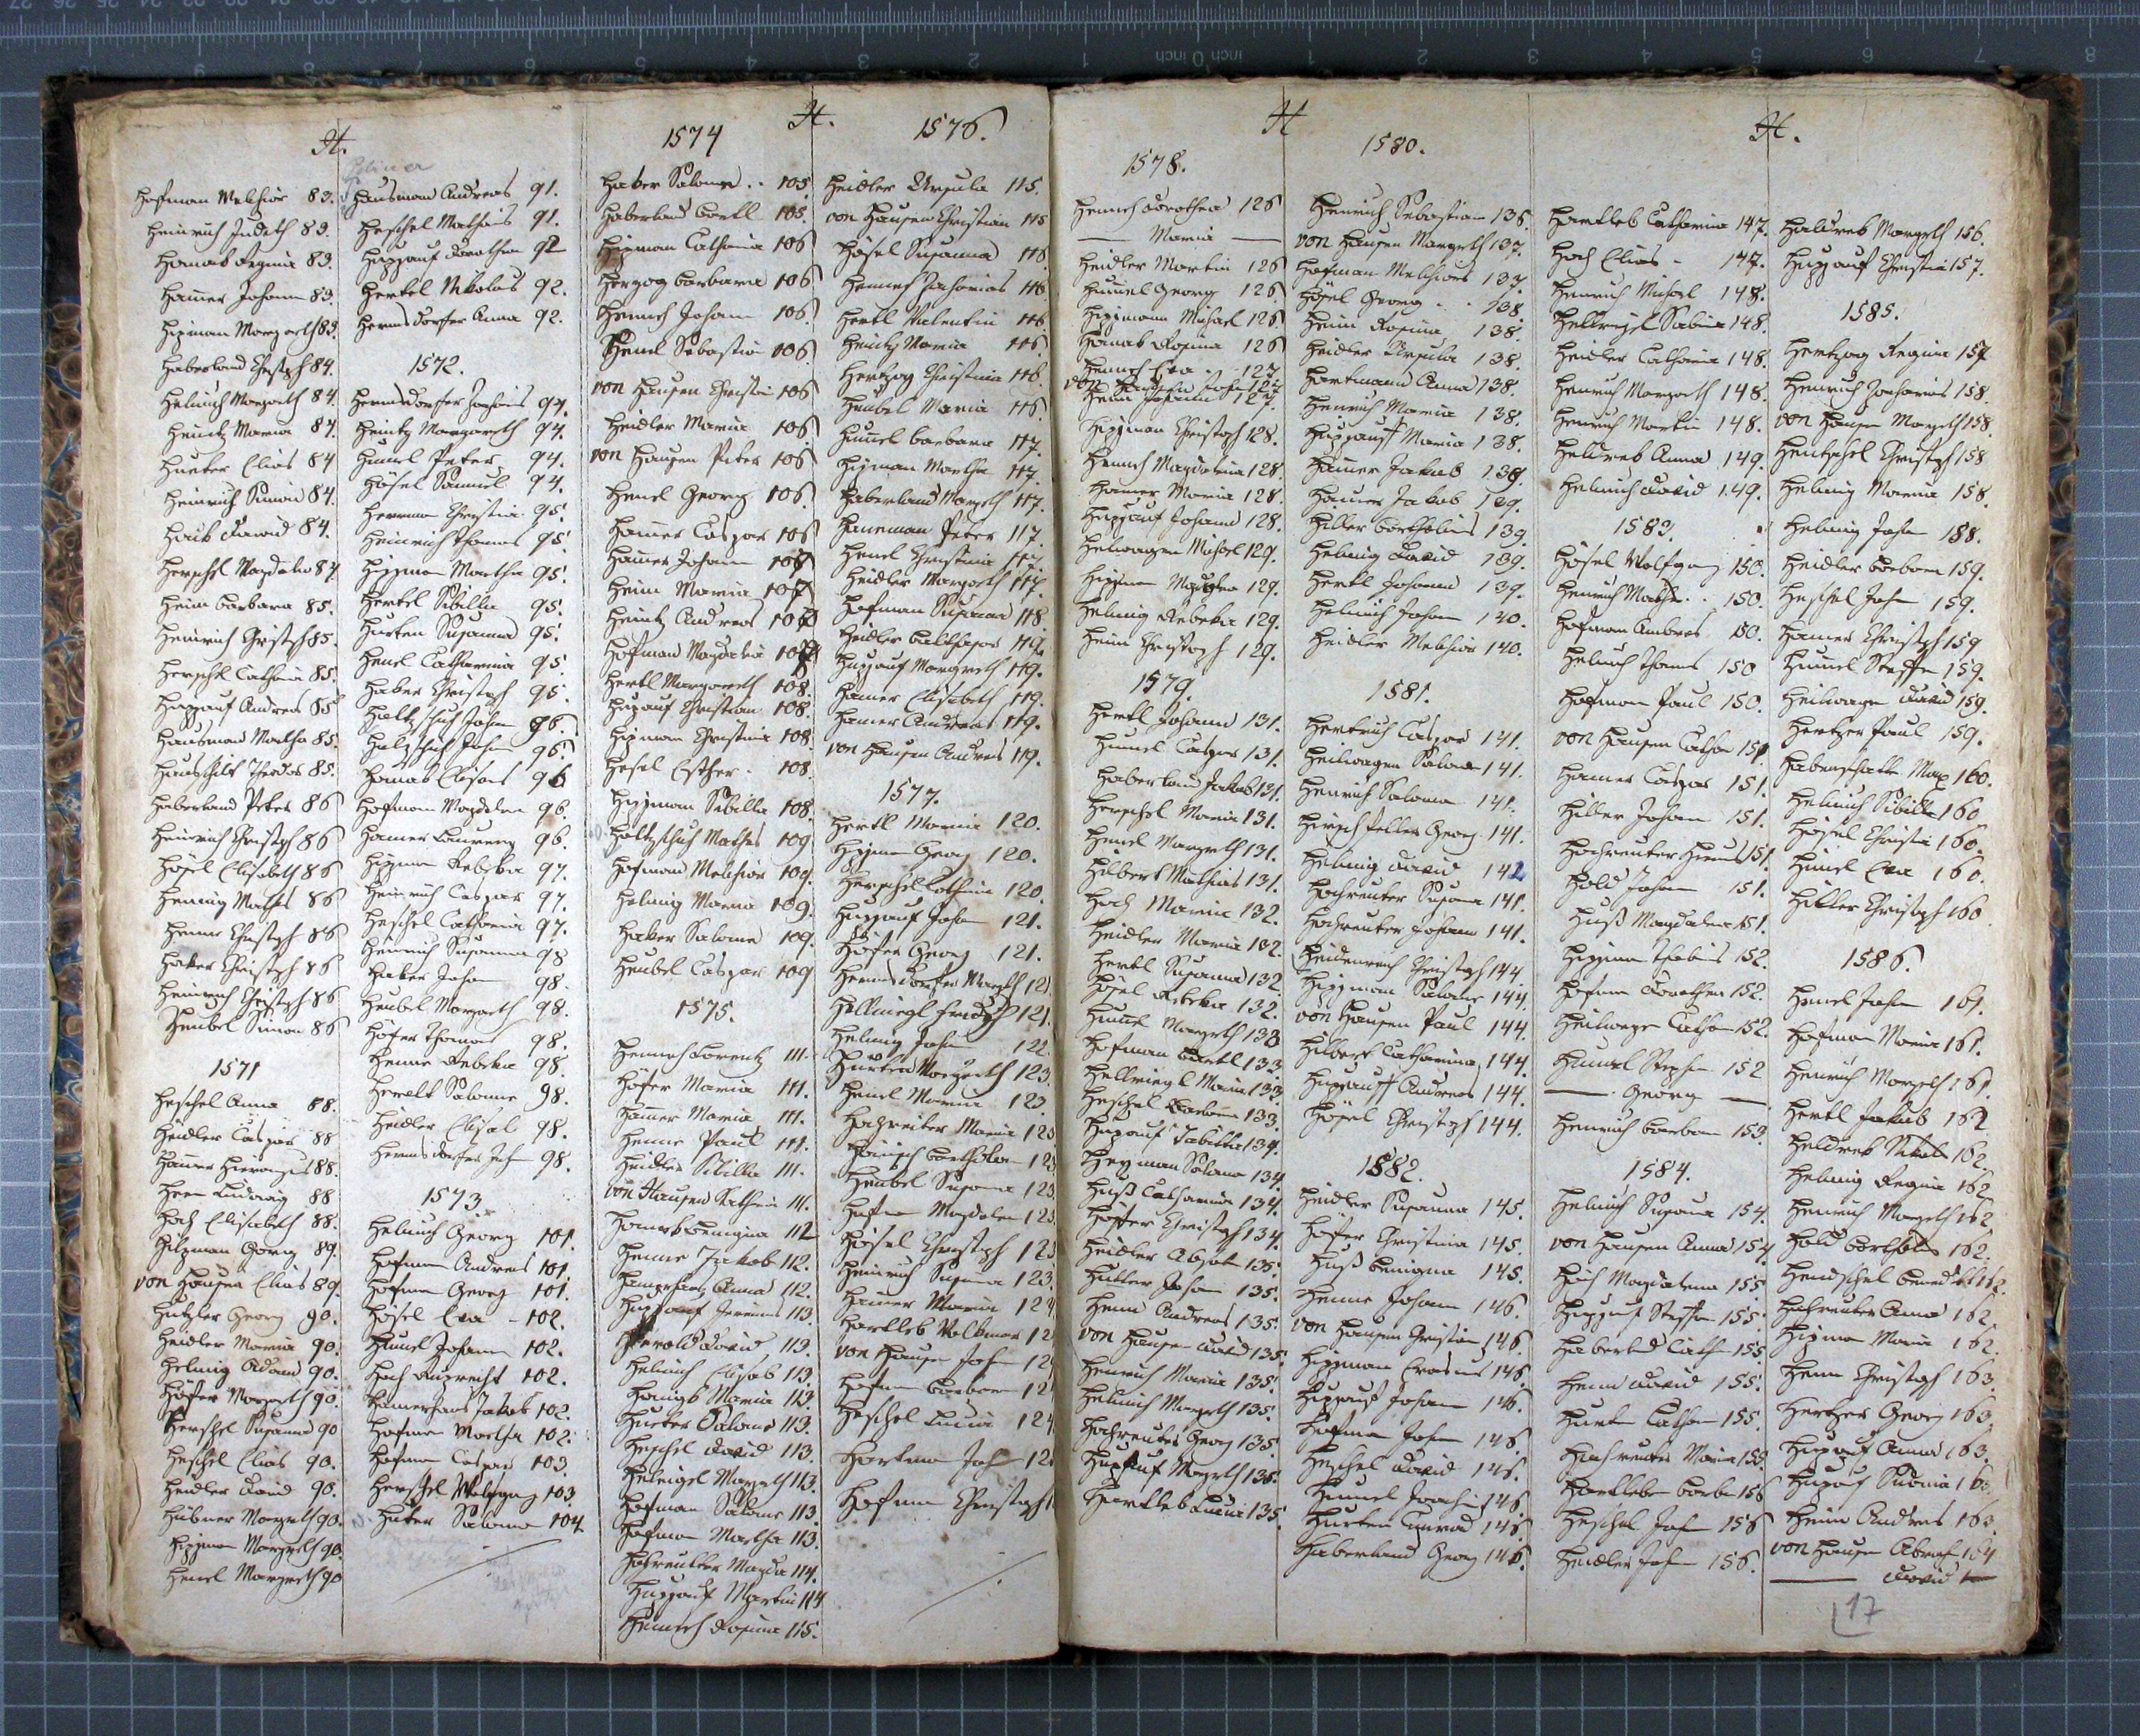 H.
Hofman Melchior 83.
Heinrich Judith 83.
Hanab Regina 83.
Hamer Johann 83.
Hipman Margareth 83.
Haberland Christoph 84.
Helmich Margreth 84.
Heintz Maria 84.
Hueter Elias 84
Heinrich Simon 84.
David 84.
Herschel Magdalen 84
Heim Barbara 85.
Heinrich Christoph 85.
Herschel Catharin 85.
Huppauf Andreas 85
Hausman Martha 85.
Theodor 85.
Haberland Peter 86
Heinrich Christoph 86
Hösel Elisabeth 86
Hennig Mathes 86
Henne Christoph 86
Haber Christoph 86
Heinrich Christoph 86
Heubel Simon 86
1571
Heschel Anna 88.
Heidler Caspar 88
Hamer Hieronymus 88.
Ludwig 88
Hoch Elisabeth 88.
Hitzman Georg 89.
von Hausen Elias 89.
Hutzler Georg 90.
Heidler Maria 90.
Helmig Adam 90.
Höfer Margreth 90.
Herschel Susanna 90
Heschel Elias 90.
Heidler David 90.
Hübner Margreth 90.
Hipman Margreth 90.
Henel Margreth 90
Hausman Andreas 91.
Heschel Mathias 91.
Huppauf Dorothea 92
Hertel Nikolaus 92.
Hermsdorfer Anna 92.
1572.
Hermsdorfer Zacharias 94.
Heintz Margareth 94.
Humel Peter 94.
Hösel Samuel 94.
Herman Christina 95.
Heinrich Thomas 95.
Hipman Martha 95.
Hertel Sibilla 95.
Hurten Susanna 95.
Henel Catharina 95.
Haber Christoph 95.
Holtzschuh Johan 96.
Holzschuh Johan 96.
Hanab 96
Hofman Magdalen 96.
Hamer Laurenz 96.
Hipman Rebeka 97.
Heinrich Caspar 97.
Heschel Catharina 97.
Heinrich Susanna 98
Haber Johan 98.
Heubel Margareth 98.
Höfer Thomas 98.
Henne Rebeka 98.
Herolt Salome 98.
Heidler Elisab 98.
Hermsdorfer Joh 98.
1573.
Helmich Georg 101.
Hofman Andreas 101
Hofman Georg 101.
Hösel Eva - 102.
Humel Johann 102.
Hoch Ruprecht 102.
Jakob 102.
Hofman Martha 102.
Hofman Caspar 103.
Herschel Wolfgang 103
Huter Salome 104
H.
1574
Haber Salome .. 105
Haberland Bartl 105.
Hipman Catharina 106
Herzog Barbara 106
Heinrich Johann 106
Henel Sebastian 106
von Hausen Christian 106
Heidler Maria 106
von Hausen Peter 106
Henel Georg 106
Hamer Caspar 106
Hamer Johann 107
Heim Maria 107
Heintz Andreas 107
Hofman Magdalen 107
Hertl Margareth 108.
Hupauf Christian 108.
Hipman Christina 108
Hesel Esther. 108.
Hipman Sibilla 108.
Holtzschuh Mathes 109
Hofman Melchior 109.
Helmig Maria 109.
Haber Salome 109.
Heubel Caspar 109
1575.
Heinrich Lorentz 111.
Höfer Maria 111.
Hamer Maria 111.
Henne Paul 111.
Heidler Sibilla 111.
von Hausen Kathrin 111.
Benigna 112
Henne Jakob 112.
Anna 112.
Huppauf Jeremias 113.
Herold David 113.
Helmich Elisab 113.
Maria 113.
Hueter Salome 113.
Heschel David 113
Margreth 113.
Hofman Salome 113
Hofman Martha 113.
Hochreuter Magda 114.
Huppauf Martin 114
Heinrich Rosina 115.
1576.
Heidler Ursula 115.
von Hausen Christian 115
Hösel Susanna 116.
Heinrich Zacharias 116
Hertl Valentin 116
Heintz Maria 116.
Hertzog Christina 116.
Heubel Maria 116
Humel Barbara 117.
Hipman Martha 117.
Haberland Margreth 117.
Haneman Peter 117.
Henel Christina 117.
Heidler Margareth 117.
Hofman Susanna 118.
Heidler Balthasar 119.
Huppauf Margreth 119.
Hamer Elisabeth 119.
Hamer Andreas 119.
von Hausen Andreas 119.
1577.
Hertl Maria 120.
Hipman Georg 120.
Herschel Cathrin 120.
Huppauf Johan 121.
Höfer Georg 121.
Hermsdorfer Margreth 121
Hellriegl Friedrich 121.
Helmig Johan 122.
Hurten Margareth 123.
Henel Maria 123.
Hochreiter Maria 123
Heubel Susanna 123.
Hofman Magdalen 123.
Hösel Christoph 123
Heinrich Susanna 123.
Hamer Maria 124
Hartleb Volkmar 12
von Hausen Joh 12
Hofman Barbara 12
Heschel Lucia 124
Hartman Joh 12
Hofman Christoph 1
H
1578.
Heinrich Dorothea 126
— Maria —
Heidler Martin 126
Humel Georg 126
Hipman Michael 126
Hanab Rosina 126
Heinrich Eva .. 127
von Hausen Joh 127
Heim Johann 127.
Hipman Christoph 128.
Heinrich Magdalena 128.
Hamer Maria 128.
Huppauf Johann 128.
Heilwagen Michael 129.
Hipman Magdalen 129.
Helmig Rebeka 129.
Heim Christoph 129.
1579.
Hertl Johann 131.
Humel Caspar 131.
Haberland Jakob 131.
Herschel Maria 131.
Henel Margreth 131.
Hilbert Mathias 131.
Hoch Maria 132.
Heidler Maria 132.
Hertl Susanna 132.
Hösel Rebeka 132.
Humel Margreth 133
Hofman Bartl 133
Hellriegl Maria 133.
Heschel Barbara 133.
Hupauf Tabitha 134.
Hipman Salome 134.
Huß Catharina 134.
Höffer Christoph 134.
Heidler 135.
Hutler Johan 135.
Henne Andreas 135.
von Hausen David 135.
Heinrich Maria 135.
Helmich Margreth 135.
Hochreuter Georg 135
Huppauf Margreth 135.
Hartleb Lucia 135.
1580.
Heinrich Sebastian 136.
von Hausen Margreth 137.
Hofman Melchior 137.
Hösel Georg .. 138.
Heim Rosina 138.
Heidler Ursula 138.
Hartmann Anna 138.
Heinrich Maria 138.
Huppauff Maria 138.
Hamer Jakob 139.
Hamer Jakob 139.
Hiller Bartholmes 139.
Helmig David 139.
Hertl Johann 139.
Helmich Johan 140.
Heidler Melchior 140.
1581.
Hertrich Caspar 141.
Heilwagen Salome 141.
Heinrich Salome 141.
Georg 141.
Helmig David 142
Hochreuter Susanna 141.
Hochreuter Johann 141.
Heidenreich Christoph 144
Hippman Salome 144.
von Hausen Paul 144.
Hilbert Catharina 144.
Huppauff Andreas 144.
Hösel Christoph 144.
1582.
Heidler Susanna 145.
Höfer Christina 145.
Huß Benigna 145.
Henne Johann 146.
von Hausen Christian 146.
Hippman Erasmus 146.
Huppauf Johann 146.
Hofman Johan 146
Heschel David 146.
Humel Joachim 146.
Hurten Conrad 146
Haberland Georg 146.
H.
Hartleb Catharina 147.
Hoch Elias - 147.
Heinrich Michael 148.
Hellriegel Sabina 148.
Heidler Catharin 148.
Heinrich Margreth 148.
Heinrich Martin 148.
Heldreb Anna 149.
Helmich David 149.
1583.
Hösel Wolfgang 150.
Heinrich Mathes .. 150.
Hofman Ambros 150.
Helmich Thomas 150
Hofman Paul 150.
von Hausen Cathar 151.
Hamer Caspar 151.
Hiller Johan 151.
Hochreuter 151.
Hold Johan 151.
Huß Magdalena 151.
Hippman Tobias 152.
Hofman Dorothea 152.
Heilwagen Cathar 152.
Humel Stephan 152
— Georg —
Heinrich Barbara 153.
1584.
Helmich Susanna 154.
von Hausen Anna 154
Hoch Magdalena 155
Huppauf Steffan 155.
Haberland Cath 155.
Henne David 155.
Hurten Cathar 155.
Hochreuter Maria 155.
Hartleben Barb 156
Heschel Joh 156
Heidler Joh 156.
Heldreb Margreth 156.
Huppauf Christian 157.
1585.
Hertzog Regina 157
Heinrich Zacharias 158.
von Hausen Margreth 158.
Hentzschel Christoph 158
Helmig Maria 158.
Helmig Johan 158.
Heidler Barbara 159.
Heschel Joh 159.
Hamer Christoph 159
Humel Steffen 159.
Heilwagen David 159.
Hertzer Paul 159.
Max 160.
Helmich Sibilla 160
Hösel Christian 160.
Humel Eva 160.
Hiller Christoph 160
1586.
Henel Johan 161.
Hofman Maria 161.
Heinrich Margreth 161.
Hertl Jakob 162
Heldreb 162.
Helmig Regina 162
Heinrich Margreth 162
Hold Bartholmes 162.
Hendschel Benedikt 162.
Hochreuter Anna 162
Hipman Maria 162.
Henne Christoph 163.
Hertzer Georg 163.
Huppauf Anna 163.
Hupauf 163.
Heim Andreas 163.
von Hausen Abrah 164
— David —
17